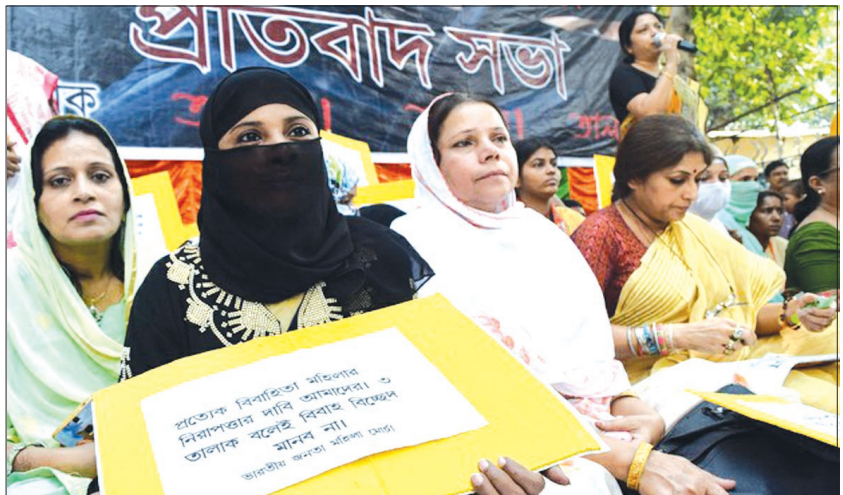 প্রতিবাদ সভা
প্রত্যেক বিবাহিতা মহিলার
নিরাপত্তার দাবি আমাদের। ৩
তালাক বলেই বিবাহ বিচ্ছেদ
মানব না।
ভারতীয় জনতা মহিলা মোর্চা